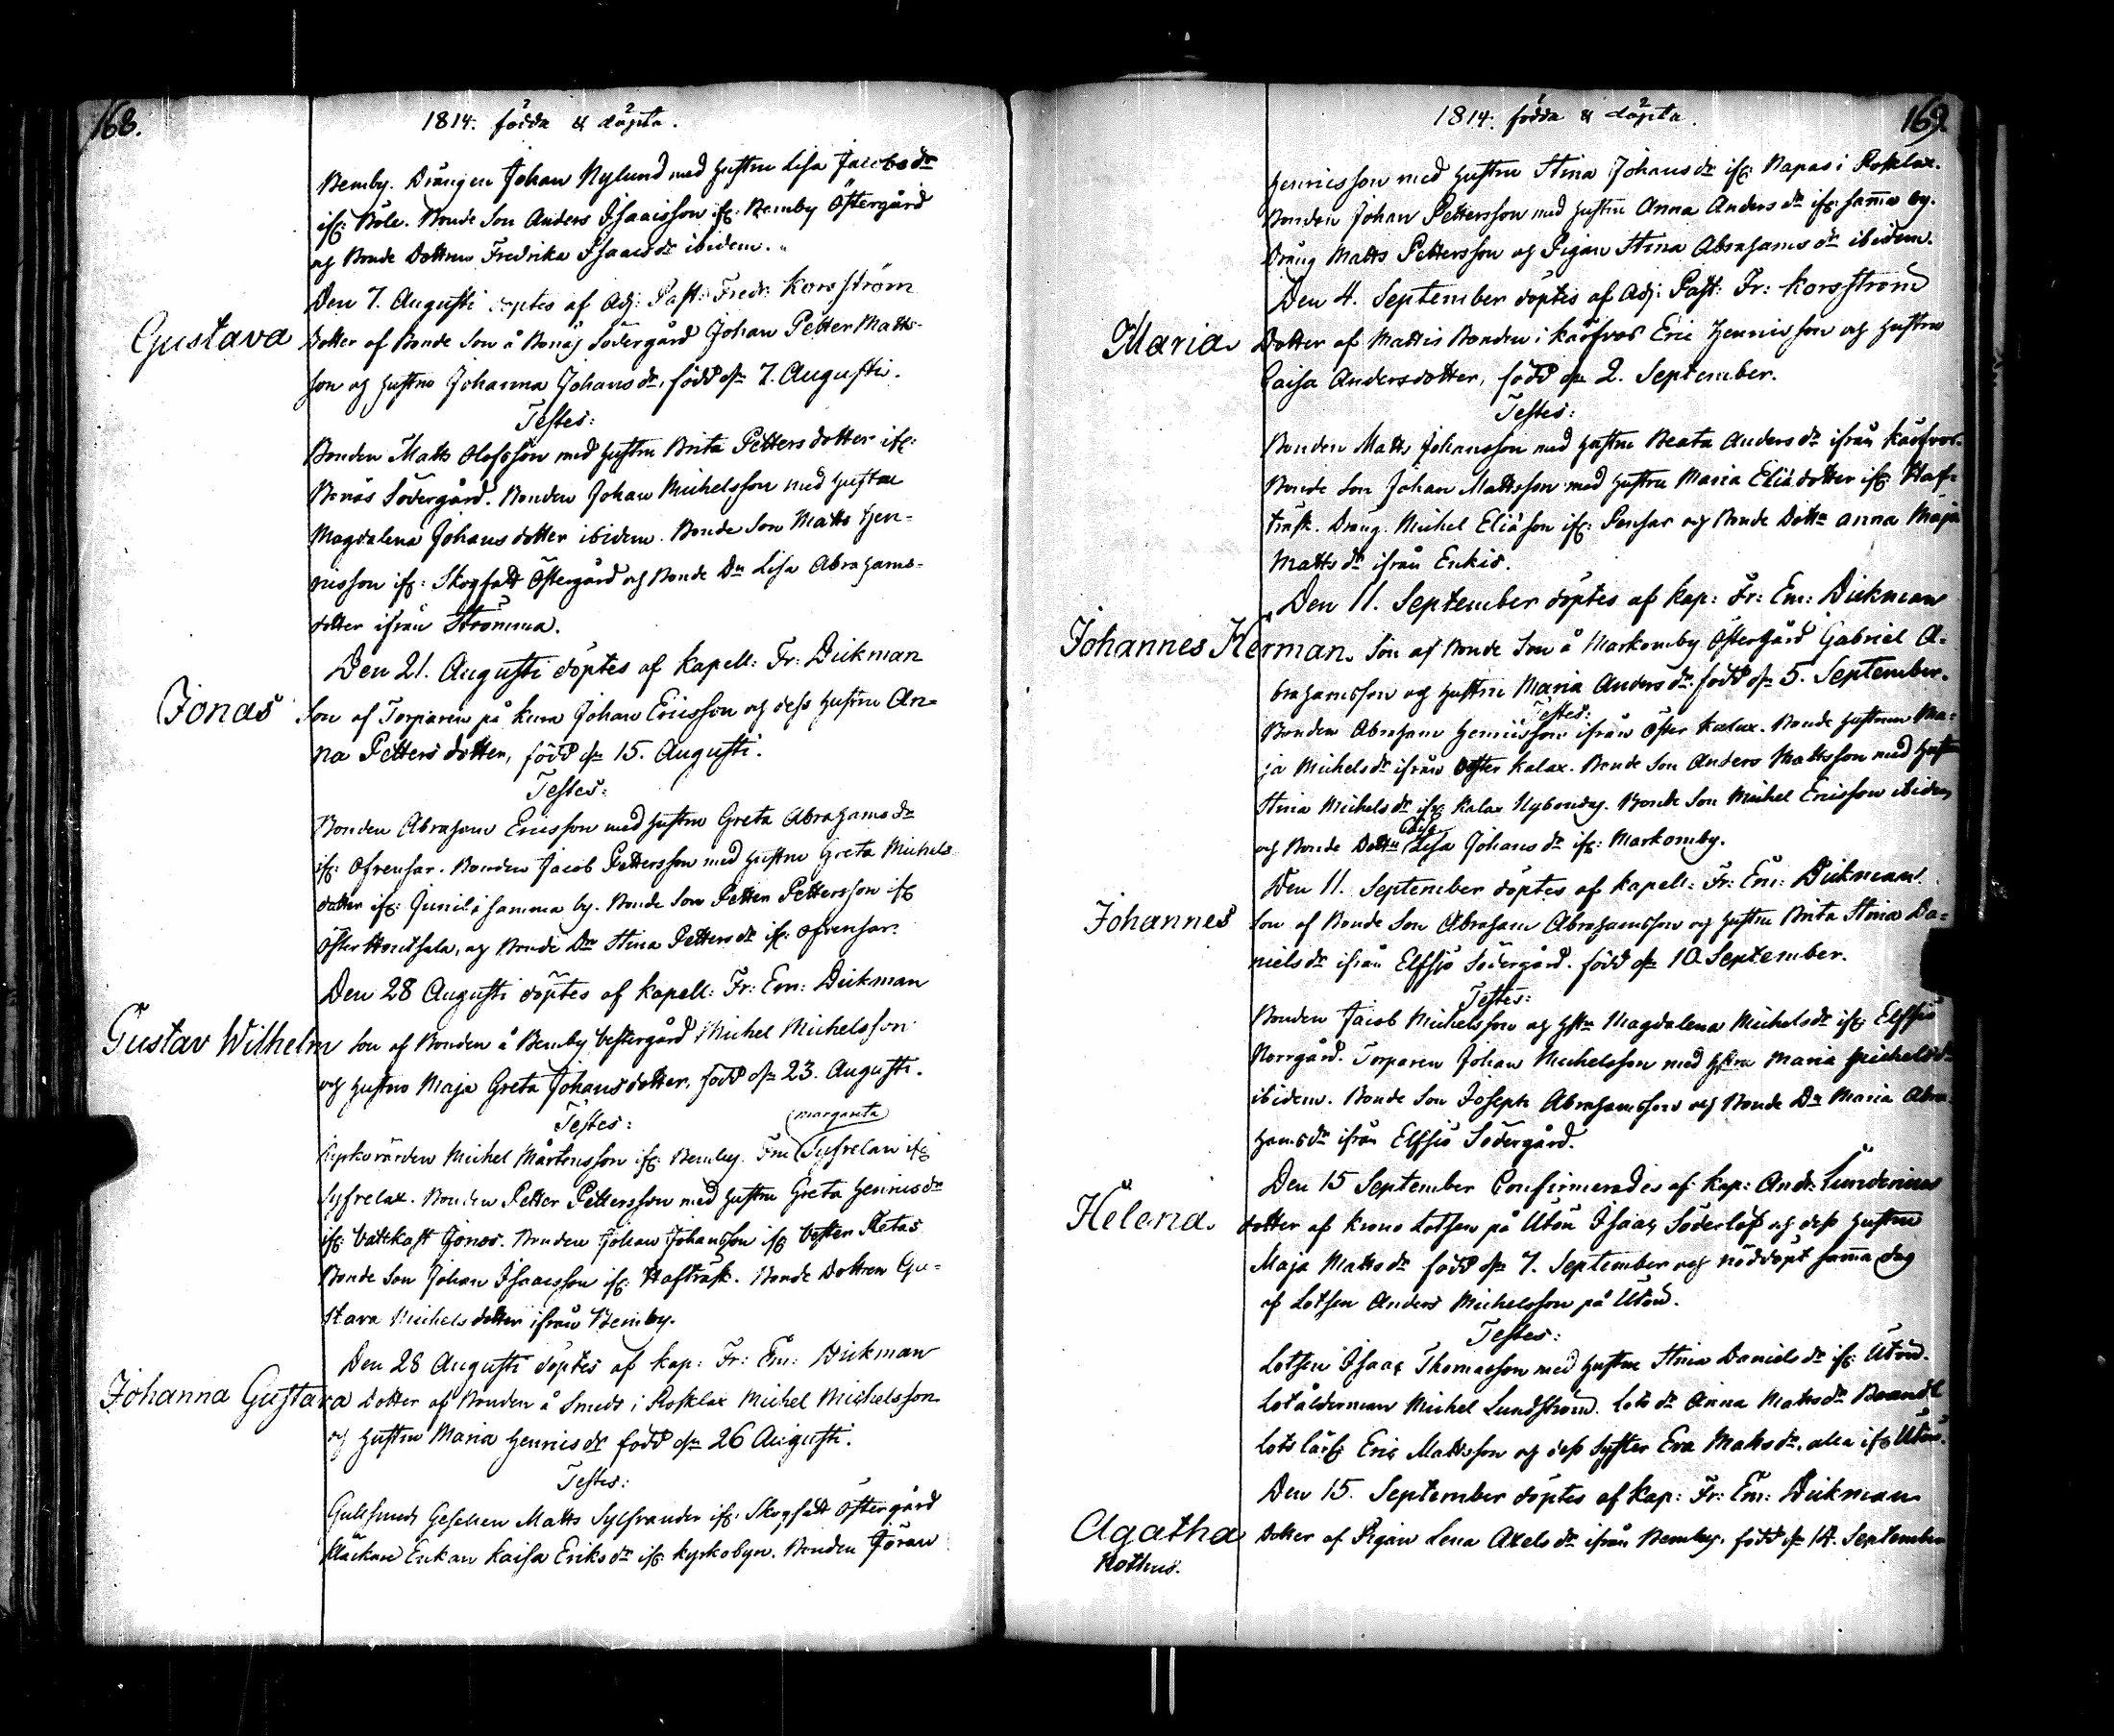 168.
1814. födda & döpta.
Bemby. Drängen Johan Nylund med hustru Lisa Jacobsdr
ifr: Böle. Bonde Son Anders Isaacsson ifr: Bemby Östergård
og Bonde Dottren Fredrika Isaacsdr ibidem.
Den 7. Augusti döptes af Adj: Past: Fredr: Korsström
Gustava Dotter af Bonde Son å Bonäs Södergård Johan Petter Matts-
son og hustru Johanna Johansdr, född d: 7. Augusti.
Testes:
Bonden Matts Olofsson med hustru Brita Pettersdotter ifr:
Bonäs Södergård. Bonden Johan Michelsson med hustru
Magdalena Johansdotter ibidem. Bonde Son Matts Hen-
ricsson ifr: Skogfalt Östergård og Bonde Dr Lisa Abrahams-
dotter ifrån Strömma.
Den 21. Augusti döptes af Kapell: Fr: Dickman
Jonas Son af Torparen på Kurn Johan Ericsson og dess hustru An-
na Pettersdotter, född d: 15. Augusti.
Testes:
Bonden Abraham Ericsson med hustru Greta Abrahamsdr
ifr: Öfvensar. Bonden Jacob Pettersson med hustru Greta Michels
dotter ifr: i samma by. Bonde Son Petter Pettersson ifr
Öster, og Bonde Dr Stina Pettersdr ifr: Öfvensar.
Den 28 Augusti döptes af Kapell: Fr: Em: Dickman
Gustav Wilhelm Son af Bonden å Bemby Vestergård Michel Michelsson
og hustru Maja Greta Johansdotter, född d: 23. Augusti.
Testes: margareta
Kyrkovärden Michel Mårtensson ifr: Bemby. Fru Syfrelan ifr
Syfvelax. Bonden Petter Pettersson med hustru Greta Henricsdr
ifr: Vattkast Jonas. Bonden Johan Johansson ifr Vester Retas
Bonde Son Johan Isaacsson ifr: Hafträsk. Bonde Dottren Gu-
stava Michelsdotter ifrån Bemby.
Den 28 Augusti döptes af Kap: Fr: Em: Dickman
Johanna Gustava Dotter af Bonden å Smeds i Rosklax Michel Michelsson
og hustru Maria Henricsdr född d: 26 Augusti.
Testes:
Gullsmeds Gesellen Matts Sylfvander ifr: Skogfalt Östergård
Enkan Kaisa Eriksdr ifr Kyrkobyn. Bonden Jöran
1814. födda & döpta. 169.
Henricsson med hustru Stina Johansdr ifr: Napas i Rosklax.
Bonden Johan Pettersson med hustru Anna Andersdr ifr: samma by.
Dräng Matts Pettersson og Pigan Stina Abrahamsdr ibidem.
Den 4. September döptes af Adj: Past: Fr: Korsström
Maria Dotter af Mattis Bonden i Kärfvos Eric Henricsson og hustru
Caisa Andersdotter, född d: 2. September.
Testes:
Bonden Matts Johansson med hustru Beata Andersdr ifrån Kärfvos.
Bonde Son Johan Mattsson med hustru Maria Eliædotter ifr: Haf-
träsk. Dräng Michel Eliæson ifr: Pensar og Bonde Dottr Anna Maja
Mattsdr ifrån Enkis.
Den 11. September döptes af Kap: Fr: Em: Dickman
Johannes Herman. Son af Bonde Son å Markomby Östergård Gabriel A-
brahamsson og hustru Maria Andersdr. född d: 5. September.
Testes:
Bonden Abraham Henricsson ifrån Öster Kalax. Bonde hustrun Ma-
ja Michelsdr ifrån Öster Kalax. Bonde Son Anders Mattsson med hustru
Stina Michelsdr ifr: Kalax Nybondas. Bonde Son Michel Ericsson ibidem
og Bonde Dottr Lisa Johansdr ifr: Markomby.
Den 11. September döptes af Kapell: Fr: Em: Dickman.
Johannes Son af Bonde Son Abraham Abrahamsson og hustru Brita Stina Da-
nielsdr ifrån Elfsjö Södergård. född d: 10. September.
Testes:
Bonden Jacob Michelsson og hstru Magdalena Michelsdr ifr: Elfsjö
Norrgård. Torparen Johan Michelsson med hstru Maria Michelsdr
ibidem. Bonde Son Joseph Abrahamsson og Bonde Dr Maria Abra-
hamsdr ifrån Elfsjö Södergård.
Den 15 September Confirmerades af Kap: Andr: Sundenius
Helena. dotter af Krono Lotsen på Utön Isaac Söderlöf og dess hustru
Maja Mattsdr född d: 7. September og nöddöpt samma dag
af Lotsen Anders Michelsson på Utön.
Testes:
Lotsen Isaac Thomasson med hustru Stina Danielsdr ifr: Utön.
Lotsålderman Michel Lundström. Lots dr Anna Mattsdr Brandt
Lots lärl: Eric Mattsson og dess syster Eva Mattsdr, alla ifr Utön.
Den 15. September döptes af Kap: Fr: Em: Dickman
Agatha Dotter af Pigan Lena Axelsdr ifrån Bemby. född d: 14. September
Nothus.